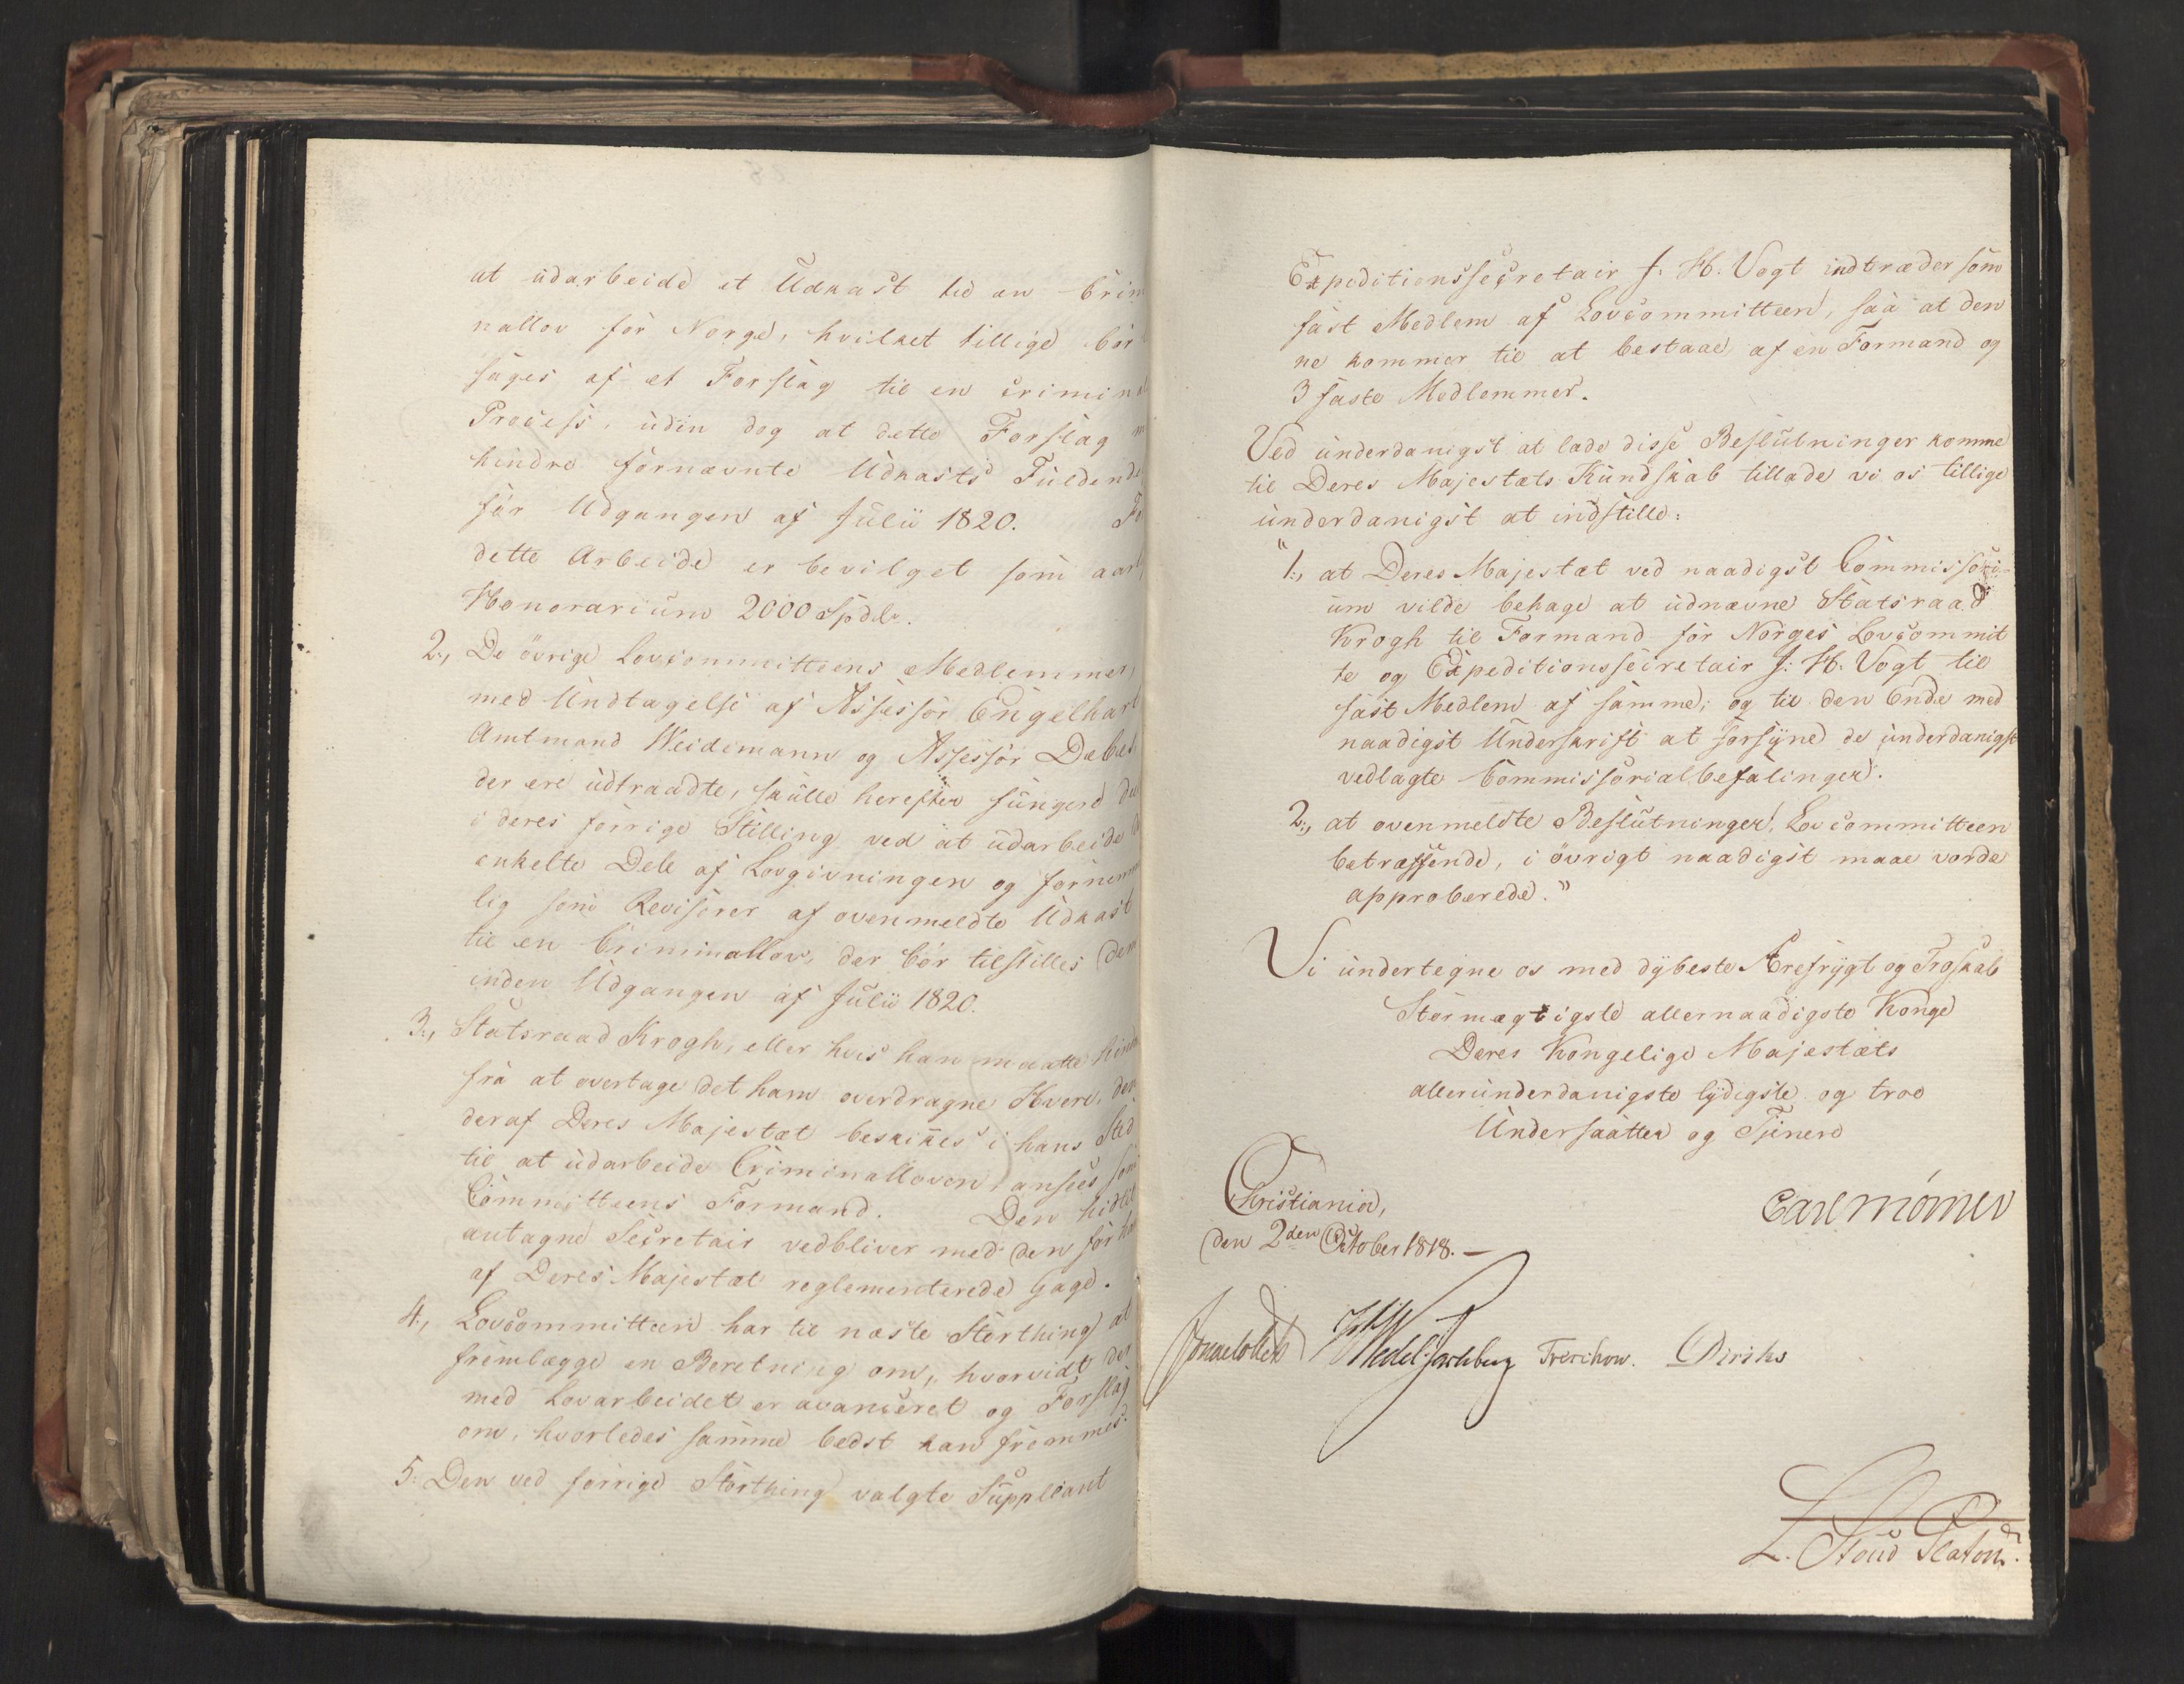 at udarbeide et Udkast til en Crim
nallov for Norge, hvilket tillige bör
sages af et Forslag til en Crimin
Process, uden dog at dette Forslag
hindre fornævnte Udkasts Fuldende
før Udgangen af Julii 1820. Fo
dette Arbeide er bevilget som aarl
Honorarium 2000 Spdlr.
2., De övrige Lovcommitteens Medlemmer,
med Undtagelse af Assessor Engelhart
Amtmand Weidemann og Assessor Debes
der ere udtraadte, skulle herefter fungere
i deres forrige Stilling ved at udarbeide
enkelte Dele af Lovgivningen og fornem
lig som Revisorer af ovenmeldte Udkast
til en Criminallov, der bör tilstilles dem
inden Udgangen af Julii 1820.
3., Statsraad Krogh, eller hvis han maatte hind
fra at overtage det ham overdragne Hverv, den
deraf Deres Majestæt beskikkes i hans Sted
til at udarbeide Criminalloven, ansees som
Committeens Formand. Den hidtil
antagne Secretair vedbliver med den for ham
af Deres Majestæt reglementerede Gage.
4., Lovcommitteen har til næste Storthing at
fremlægge en Beretning om, hvorvidt der
med Lovarbeidet er avanceret og Forslag
om, hvorledes samme bedst kan fremmes.
5. Den ved forrige Storthing valgte Suppleant
Expeditionssecretair J. H. Vogt indtræder som
fast Medlem af Lovcommitteen, saa at den
ne kommer til at bestaae af en Formand og
3 faste Medlemmer.
Ved underdanigst at lade disse Beslutninger komme
til Deres Majestæts Kundskab tillade vi os tillige
underdanigst at indstille:
"1., at Deres Majestæt ved naadigst Commissori-
um vilde behage at udnævne Statsraad
Krogh til Formand for Norges Lovcommit
te og Expeditionssecretair J: H. Vogt til
fast Medlem af samme; og til den Ende med
naadigst Underskrift at forsyne de underdanigst
vedlagte Commissorialbefalinger.
2., at ovenmeldte Beslutninger, Lovcommitteen
betræffende, i övrigt naadigst maae vorde
approberede."
Vi undertegne os med dybeste Ærefrygt og Troskab
Stormægtigste allernaadigste Konge
Deres Kongelige Majestæts
allerunderdanigste lydigste og troe
Undersaatter og Tjenere
Christiania,
den 2den October 1818. —
Carl Mörner
Sommerhielm Wedel Jarlsberg Treschow. Diriks
L. Stoud Platou.